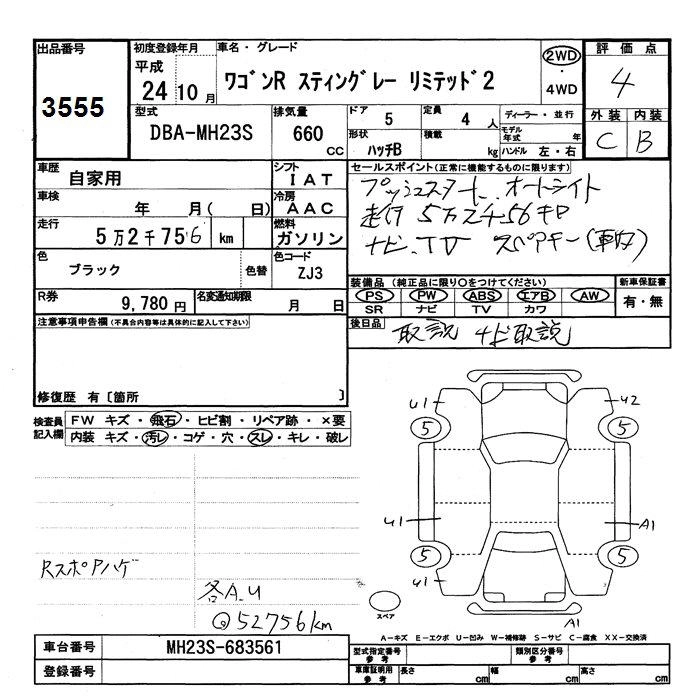 出品番号 初度登録年月 車名・グレード 2WD ・ 4WD 評価点
3555 平成 24 10月 ワゴンR スティングレー リミテッド2 4
型式 排気量 ドア 5 定員 4 人 ディーラー・並行 外装 内装
DBA-MH23S 660 CC 形状 ハッチB 積載 kg モデル年式 年 ハンドル 左・右 C B
車歴 自家用 シフト IAT セールスポイント(正常に機能するものに限ります)
車検 年 月( 日) 冷房 AAC プッシュスタート、オートライト
走行 5万2千756 km 燃料 ガソリン 走行 5万2千456キロ
ナビ、TV スペアキー(車内)
色 ブラック 色替 色コード ZJ3
装備品(純正品に限り○をつけてください) 新車保証書
PS PW ABS エアB AW 有・無
SR ナビ TV カワ
R券 9,780円 名変通知期限 月 日
後日品 取説 ナビ取説
注意事項申告欄(不具合内容等は具体的に記入して下さい)
修復歴 有〔箇所 〕
検査員記入欄 FW キズ・飛石・ヒビ割・リペア跡・×要
内装 キズ・汚レ・コゲ・穴・スレ・キレ・破レ
U1 U2
5 5
U1 A1
5 5
U1
Rスポアハゲ
各A.U
@52756km
スペア A1
A-キズ E-エクボ U-凹み W-補修跡 S-サビ C-腐食 XX-交換済
車台番号 MH23S-683561 型式指定番号 参考 類別区分番号 参考
登録番号 車庫証明用 参考 長さ cm 幅 cm 高さ cm